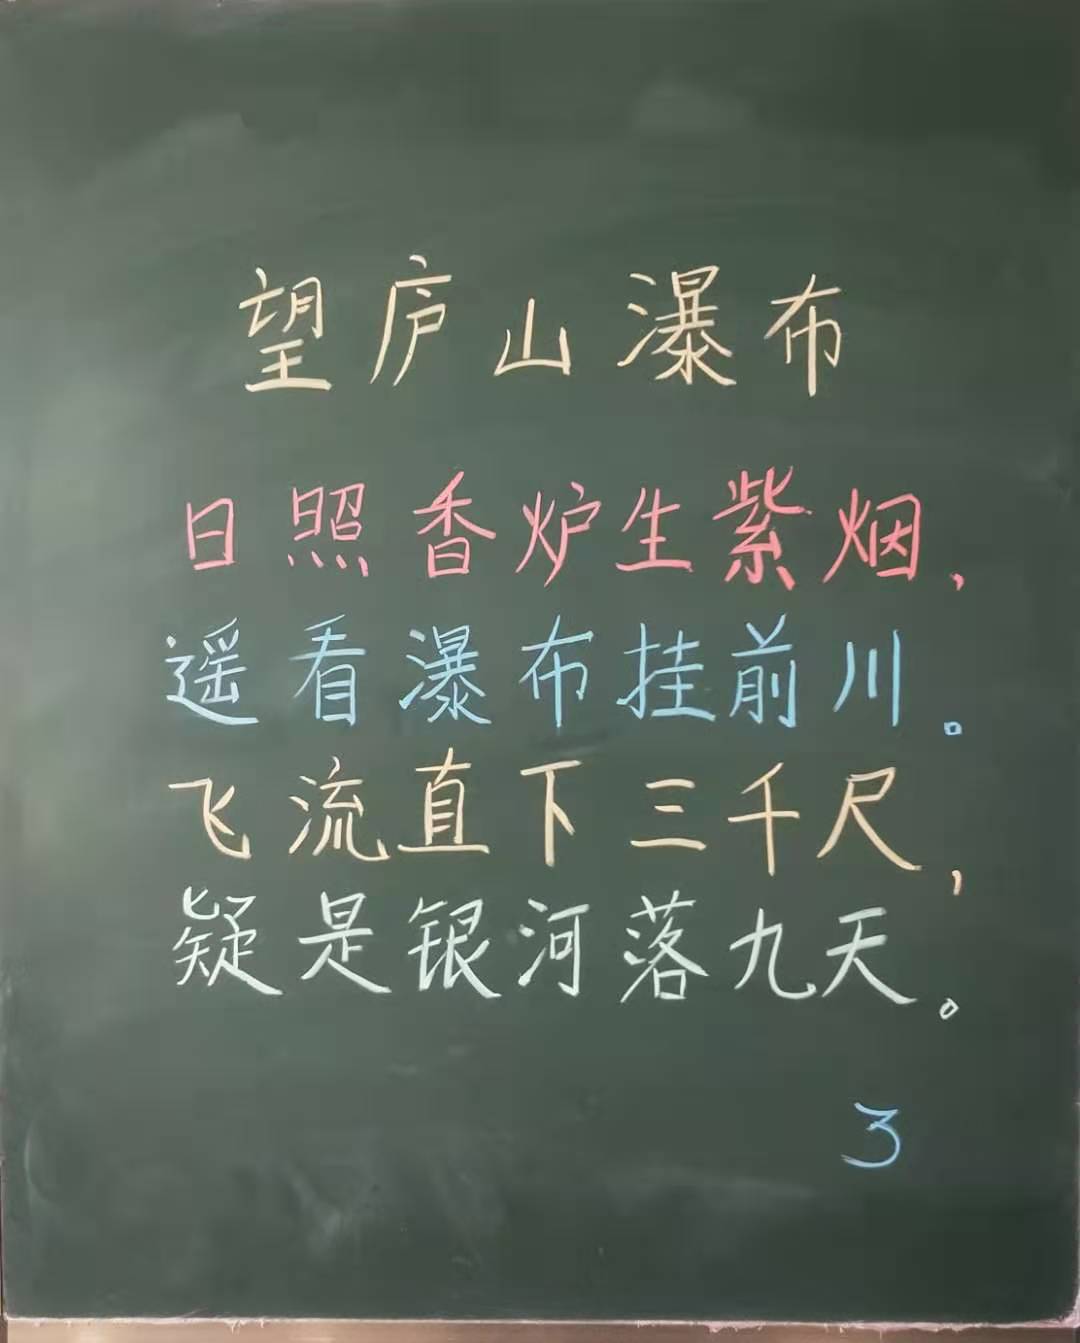 望庐山瀑布
日照香炉生紫烟，
遥看瀑布挂前川。
飞流直下三千尺，
疑是银河落九天。
3